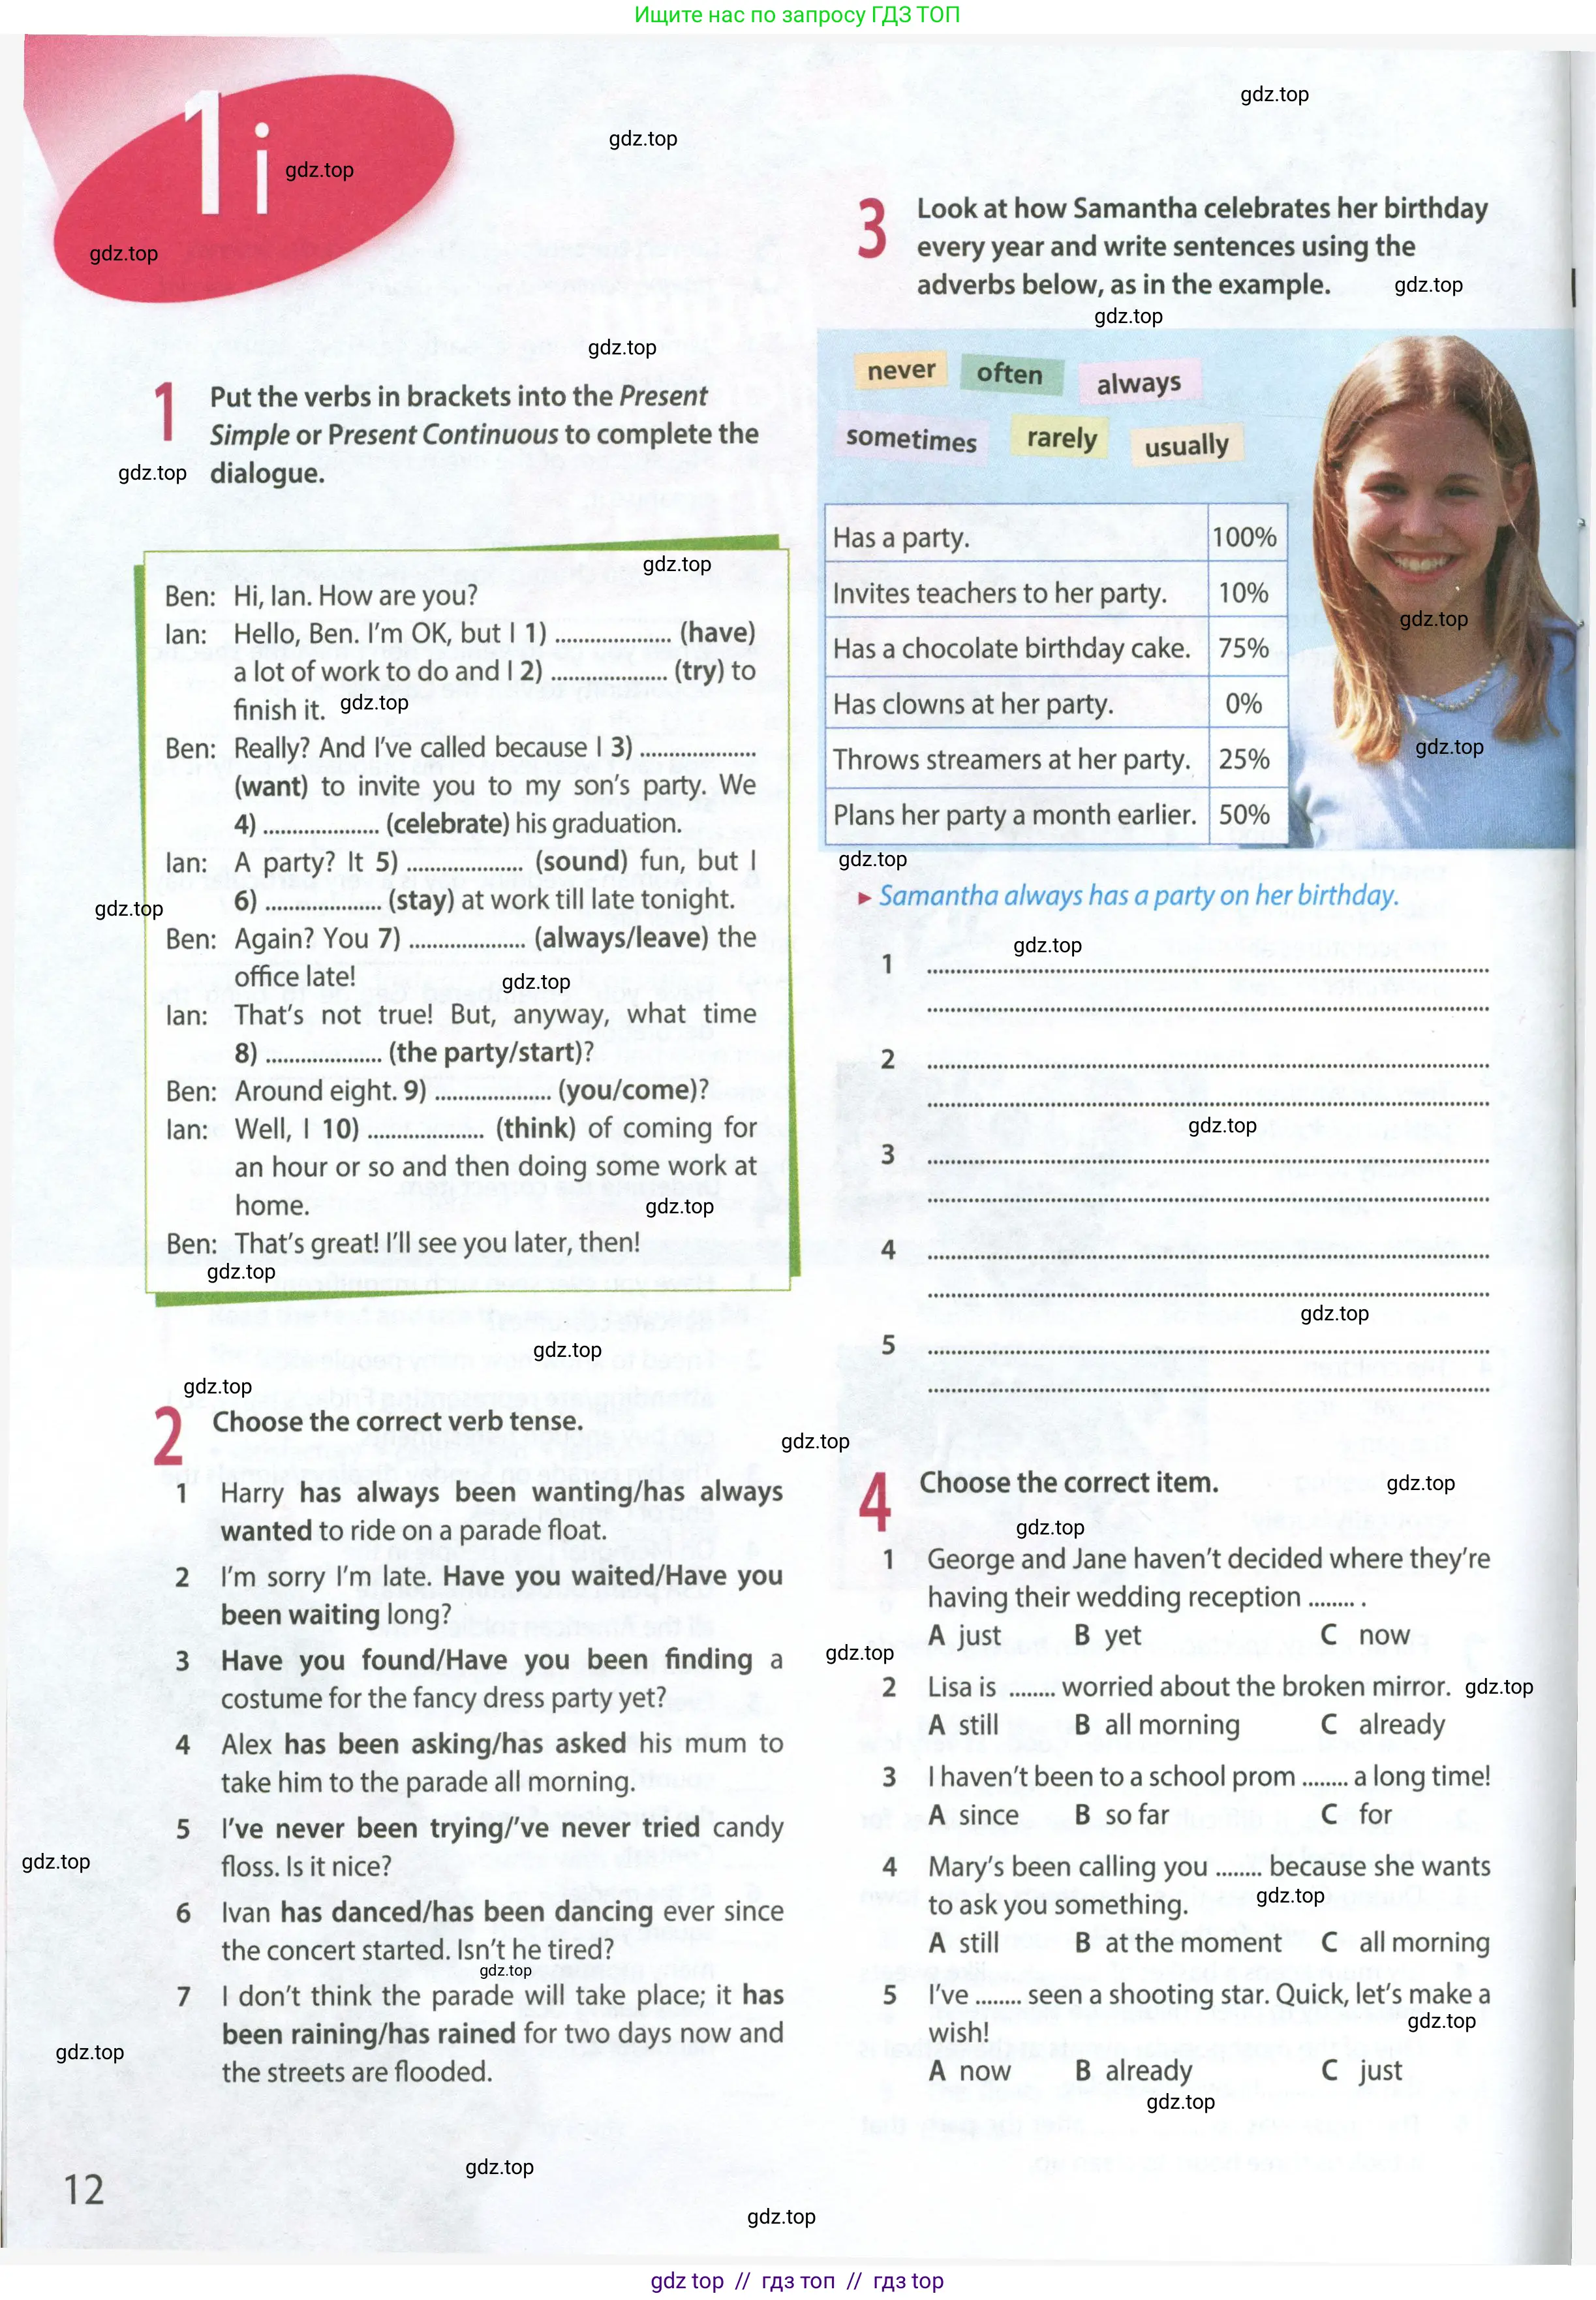 Ищите нас по запросу ГДЗ ТОП
gdz.top
gdz.top
1i
gdz.top
gdz.top
gdz.top
1 Put the verbs in brackets into the Present
Simple or Present Continuous to complete the
gdz.top dialogue.
gdz.top
Ben: Hi, Ian. How are you?
Ian: Hello, Ben. I'm OK, but I 1) .................... (have)
a lot of work to do and I 2) .................... (try) to
finish it. gdz.top
Ben: Really? And I've called because I 3) ....................
(want) to invite you to my son's party. We
4) .................... (celebrate) his graduation.
Ian: A party? It 5) .................... (sound) fun, but I
gdz.top 6) .................... (stay) at work till late tonight.
Ben: Again? You 7) .................... (always/leave) the
office late! gdz.top
Ian: That's not true! But, anyway, what time
8) .................... (the party/start)?
Ben: Around eight. 9) .................... (you/come)?
Ian: Well, I 10) .................... (think) of coming for
an hour or so and then doing some work at
home. gdz.top
Ben: That's great! I'll see you later, then!
gdz.top
gdz.top
gdz.top
2 Choose the correct verb tense.
1 Harry has always been wanting/has always
wanted to ride on a parade float.
2 I'm sorry I'm late. Have you waited/Have you
been waiting long?
3 Have you found/Have you been finding a
costume for the fancy dress party yet?
4 Alex has been asking/has asked his mum to
take him to the parade all morning.
5 I've never been trying/'ve never tried candy
floss. Is it nice?
gdz.top
6 Ivan has danced/has been dancing ever since
the concert started. Isn't he tired?
gdz.top
7 I don't think the parade will take place; it has
been raining/has rained for two days now and
the streets are flooded.
gdz.top
gdz.top
12
3 Look at how Samantha celebrates her birthday
every year and write sentences using the
adverbs below, as in the example. gdz.top
gdz.top
never often always
sometimes rarely usually
Has a party. 100%
Invites teachers to her party. 10%
Has a chocolate birthday cake. 75%
Has clowns at her party. 0%
Throws streamers at her party. 25%
Plans her party a month earlier. 50%
gdz.top
gdz.top
gdz.top
► Samantha always has a party on her birthday.
gdz.top
1 ....................
....................
2 ....................
....................
gdz.top
3 ....................
....................
4 ....................
....................
gdz.top
5 ....................
....................
gdz.top
4 Choose the correct item. gdz.top
gdz.top
1 George and Jane haven't decided where they're
having their wedding reception ........ .
A just B yet C now
gdz.top
2 Lisa is ........ worried about the broken mirror. gdz.top
A still B all morning C already
3 I haven't been to a school prom ........ a long time!
A since B so far C for
4 Mary's been calling you ........ because she wants
to ask you something. gdz.top
A still B at the moment C all morning
5 I've ........ seen a shooting star. Quick, let's make a
wish! gdz.top
A now B already C just
gdz.top
gdz.top
gdz top // гдз топ // гдз top